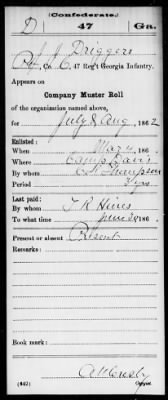 (Confederate.)
D 47 Ga.
J. J. Driggers
Pvt, Co. C, 47 Reg't Georgia Infantry.
Appears on
Company Muster Roll
of the organization named above,
for July & Aug, 1862
Enlisted:
When Mar 4, 186
Where Camp Davis
By whom Thompson
Period 3 yrs
Last paid:
By whom T. R. Hines
To what time June 30, 186
Present or absent Present
Remarks:
Book mark:
(642) Copyist.